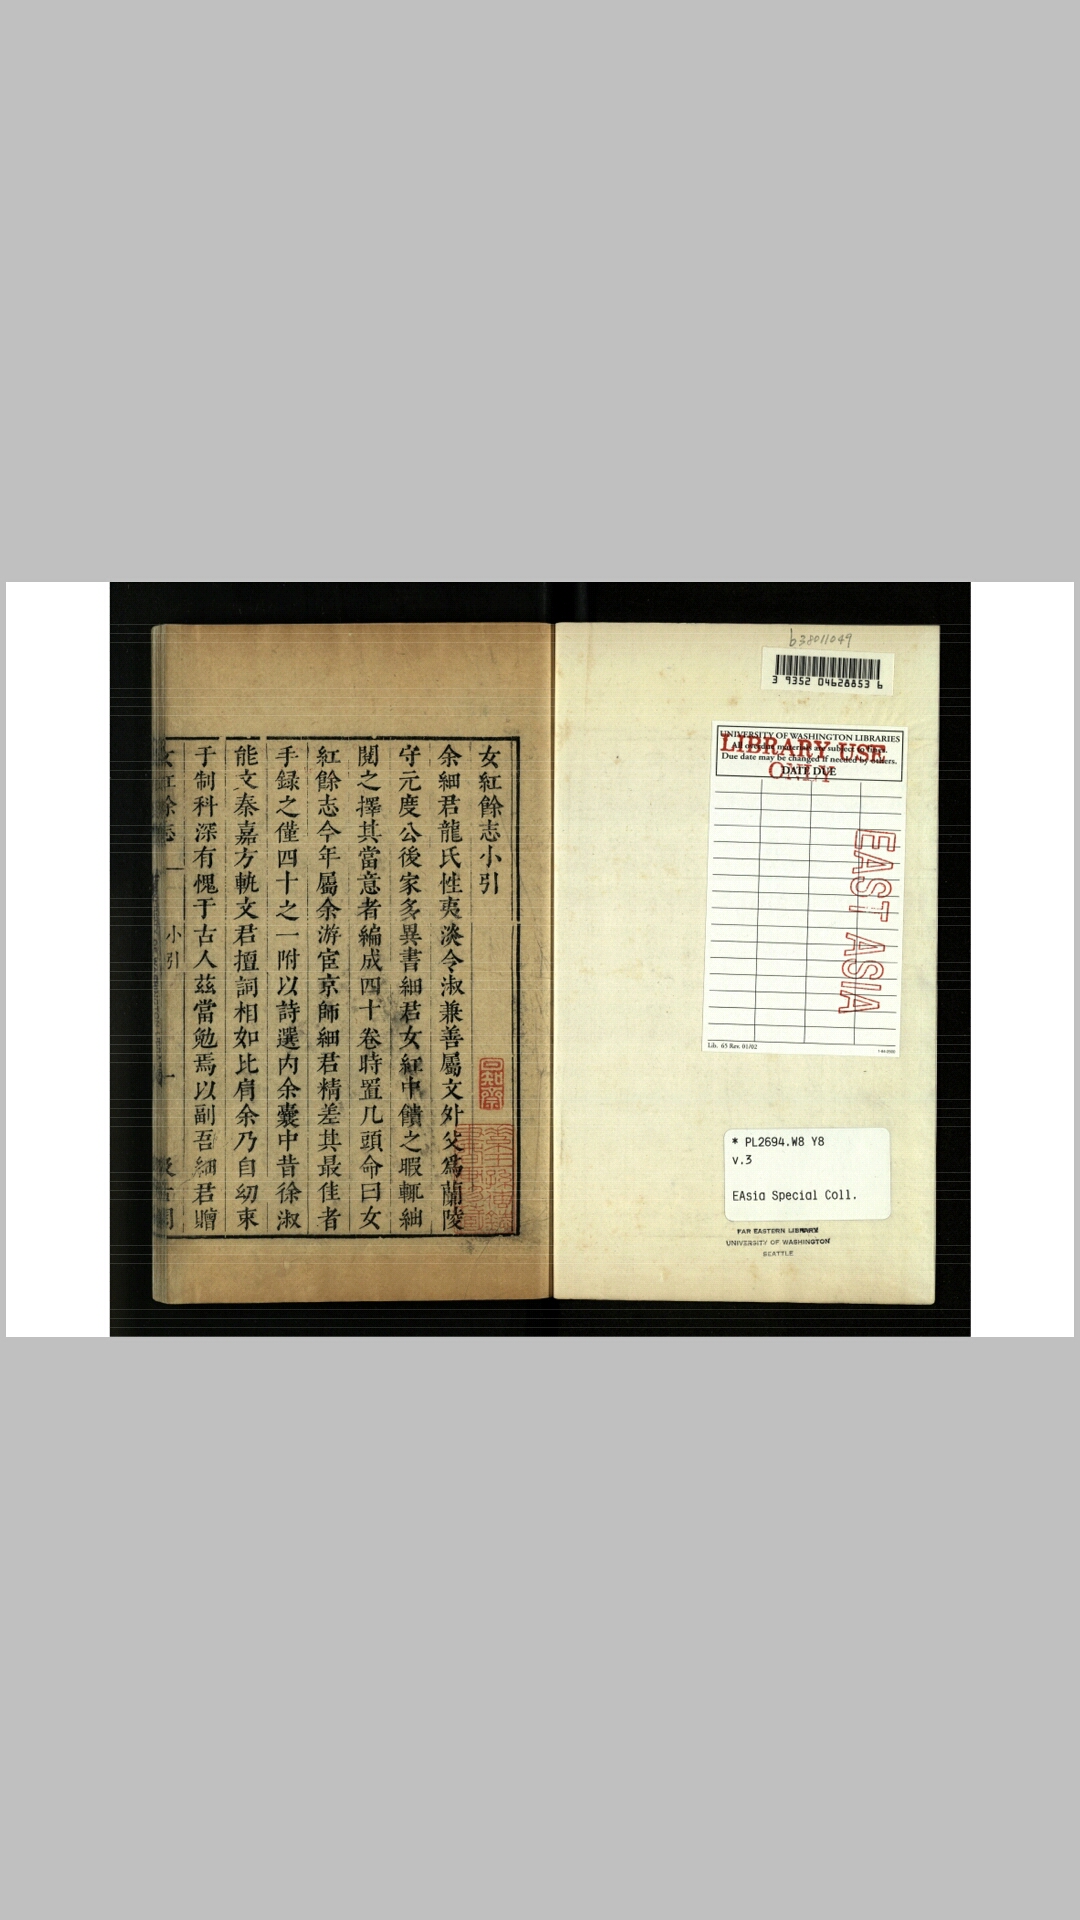 b38011049
3 9352 04628853 6
UNIVERSITY OF WASHINGTON LIBRARIES
All overdue materials are subject to fines.
Due date may be changed if needed by others.
DATE DUE
LIBRARY USE
ONLY
EAST ASIA
Lib. 65 Rev. 01/02
* PL2694.W8 Y8
v.3
EAsia Special Coll.
FAR EASTERN LIBRARY
UNIVERSITY OF WASHINGTON
SEATTLE
女紅餘志小引
余細君龍氏性夷淡令淑兼善屬文外父爲蘭陵
守元度公後家多異書細君女紅中饋之暇輒紬
閱之擇其當意者編成四十卷時置几頭命曰女
紅餘志今年屬余游宦京師細君精差其最佳者
手録之僅四十之一附以詩選内余囊中昔徐淑
能文秦嘉方軌文君擅詞相如比肩余乃自幼束
于制科深有愧于古人茲當勉焉以副吾細君贈
女紅餘志
小引
一